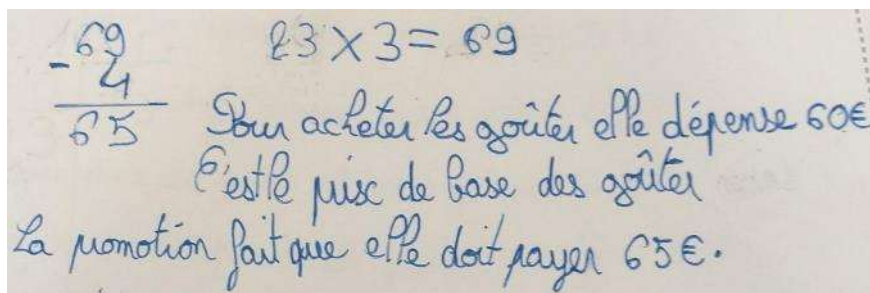 69 23 × 3 = 69
- 4
65 Pour acheter les goûter elle dépense 60€
C'est le prix de base des goûter
La promotion fait que elle doit payer 65€.